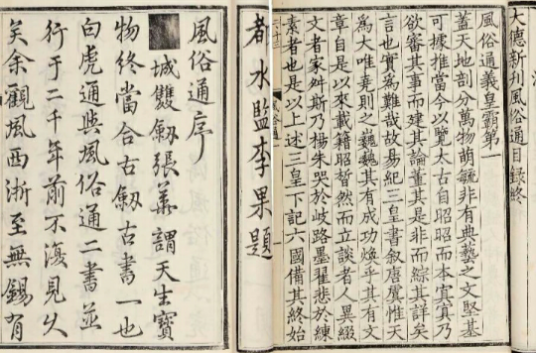 大德新刊風俗通目錄終
風俗通義皇霸第一
蓋天地剖分萬物萌毓非有典藝之文堅基
可據推當今以覽太古自昭昭而本冥冥乃
欲審其事而建其論董其是非而綜其詳矣
言也實為難哉故易紀三皇書叙唐虞惟天
為大唯堯則之巍巍其有成功煥乎其有文
章自是以來載籍昭晳然而立談者人異綴
文者家舛斯乃楊朱哭於岐路墨翟悲於練
素者也是以上述三皇下記六國備其終始
都水監李果題
風俗通序
城雙劔張華謂天生寶
物終當合古劔古書一也
白虎通與風俗通二書並
行于二千年前不復見久
矣余觀風西浙至無錫有